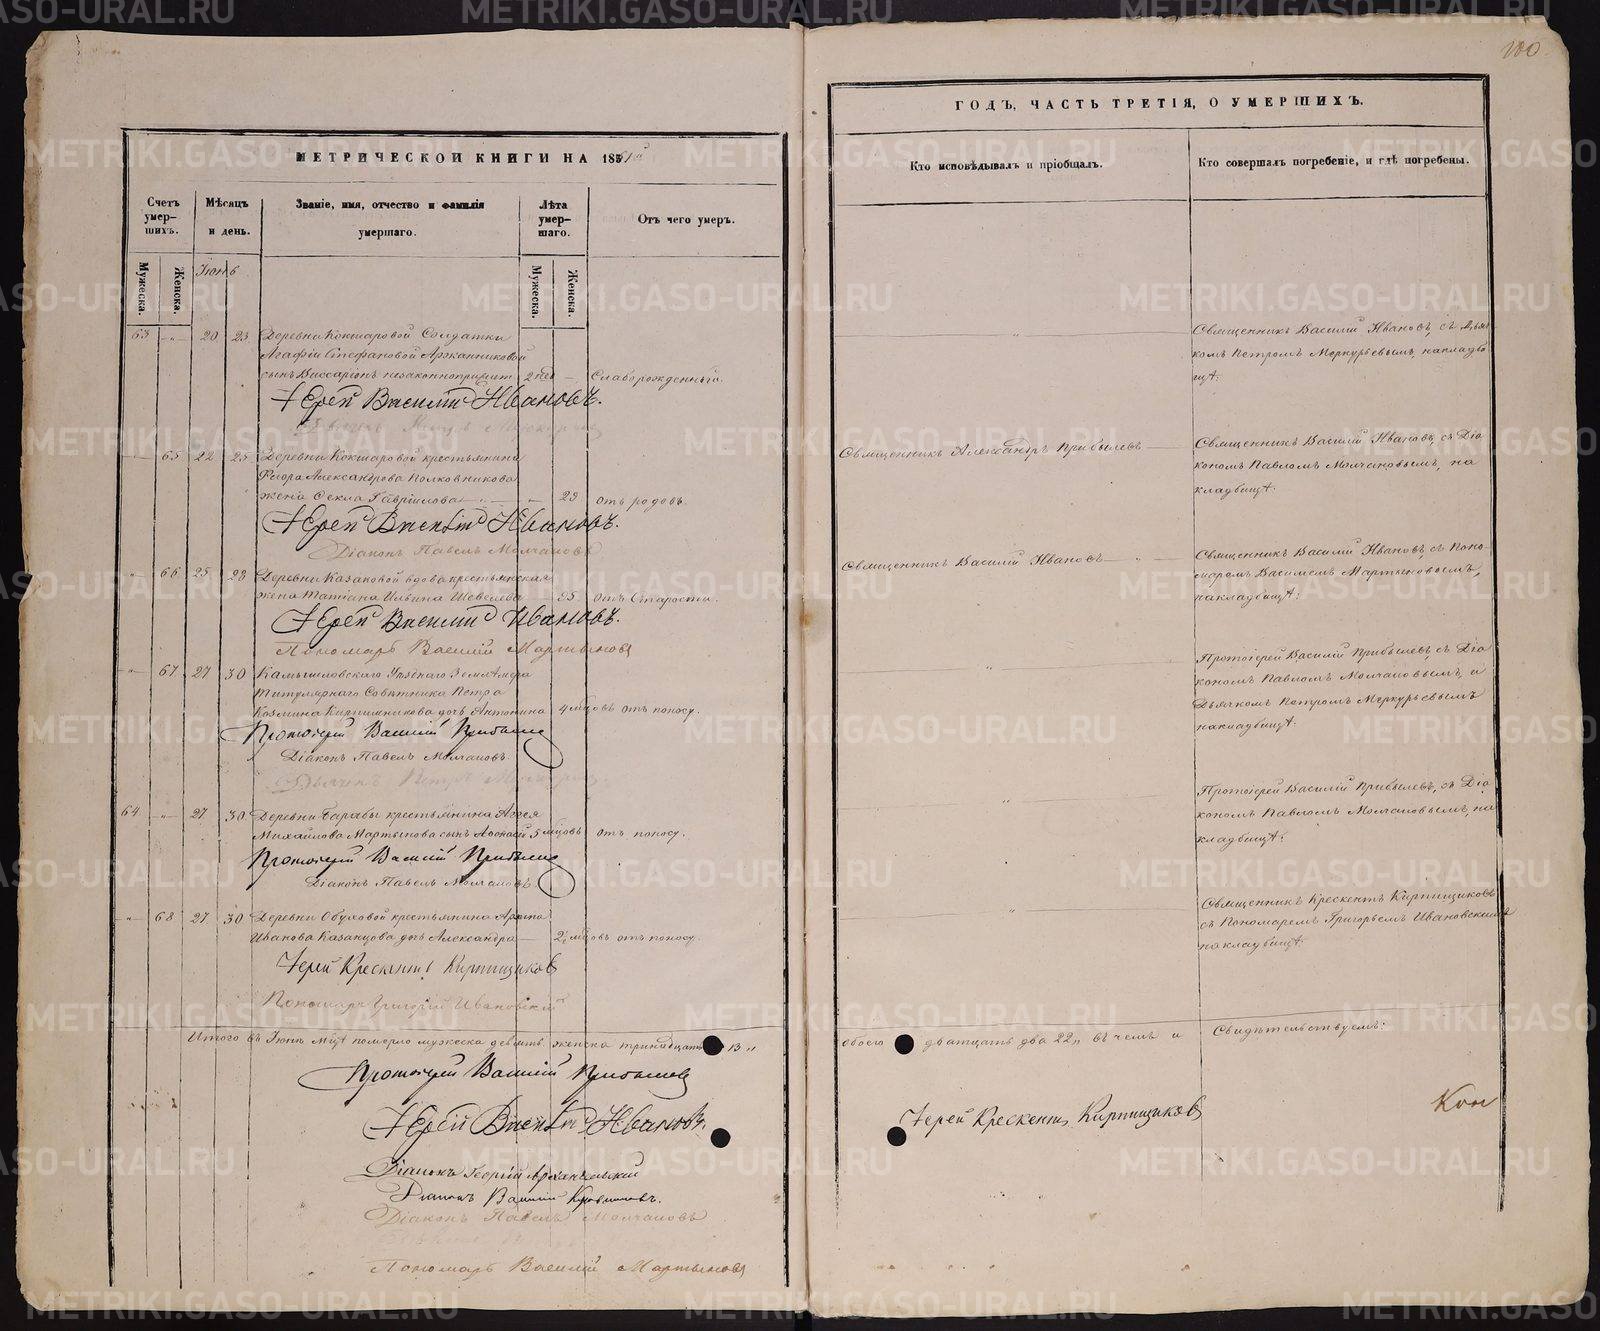 100
МЕТРИЧЕСКОЙ КНИГИ НА 1851й
ГОДЪ, ЧАСТЬ ТРЕТІЯ, О УМЕРШИХЪ.
Счетъ умер-шихъ.
Мѣсяцъ и день.
Званіе, имя, отчество и фамилія умершаго.
Лѣта умер-шаго.
Отъ чего умеръ.
Кто исповѣдывалъ и пріобщалъ.
Кто совершалъ погребеніе, и гдѣ погребены.
Мужеска. Женска.
Мужеска. Женска.
Іюнь
63 20 23 Деревни Кокшаровой Солдатки
Агафіи Стефановой Аржанниковой
сынъ Виссаріонъ незаконноприжит. 2 нед. Слаборожденный.
Іерей Василій Ивановъ.
Священникъ Василій Ивановъ, съ Дьяч-
комъ Петромъ Меркурьевымъ, на кладби-
щѣ.
65 22 25 Деревни Кокшаровой крестьянина
Александрова Полковникова
жена Ѳекла Гавріилова 29 отъ родовъ.
Іерей Василій Ивановъ.
Діаконъ Павелъ Молчановъ
Священникъ Александръ Прибылевъ
Священникъ Василій Ивановъ, съ Діа
кономъ Павломъ Молчановымъ, на
кладбищѣ.
66 25 28 Деревни Казаковой вдова крестьянская
жена Татіана Ильина Шевелева 85 отъ Старости.
Іерей Василій Ивановъ.
Пономарь Василій Мартыновъ
Священникъ Василій Ивановъ
Священникъ Василій Ивановъ, съ Поно-
маремъ Василіемъ Мартыновымъ,
на кладбищѣ.
67 27 30 Камышловскаго Уѣзднаго Землемѣра
Титулярнаго Совѣтника Петра
Козмина Кирпишникова дочь Антонина 4 мцовъ отъ поносу.
Протоіерей Василій Прибылевъ
Діаконъ Павелъ Молчановъ.
Дьячекъ Петръ Меркурьевъ
Протоіерей Василій Прибылевъ, съ Діа
кономъ Павломъ Молчановымъ, и
Дьячкомъ Петромъ Меркурьевымъ
на кладбищѣ.
64 27 30 Деревни Барабы крестьянина Аггея
Михайлова Мартынова сынъ 5 мцовъ отъ поносу.
Протоіерей Василій Прибылевъ
Діаконъ Павелъ Молчановъ.
Протоіерей Василій Прибылевъ, съ Діа
кономъ Павломъ Молчановымъ, на
кладбищѣ.
68 27 30 Деревни Обуховой крестьянина
Иванова Казанцова дочь Александра 2½ мцовъ отъ поносу.
Іерей Крескентъ Кирпищиковъ
Пономарь Григорій Ивановскій
Священникъ Крескентъ Кирпищиковъ
съ Пономаремъ Григорьемъ Ивановскимъ
на кладбищѣ.
Итого въ Іюнѣ мцѣ померло мужеска девять женска тринадцать 13
обоего двадцать два 22 въ чемъ и Свидѣтельствуемъ:
Протоіерей Василій Прибылевъ
Іерей Василій Ивановъ.
Іерей Крескентъ Кирпищиковъ
Діаконъ Георгій Архангельскій
Діаконъ Василій
Діаконъ Павелъ Молчановъ
Пономарь Василій Мартыновъ
METRIKI.GASO-URAL.RU